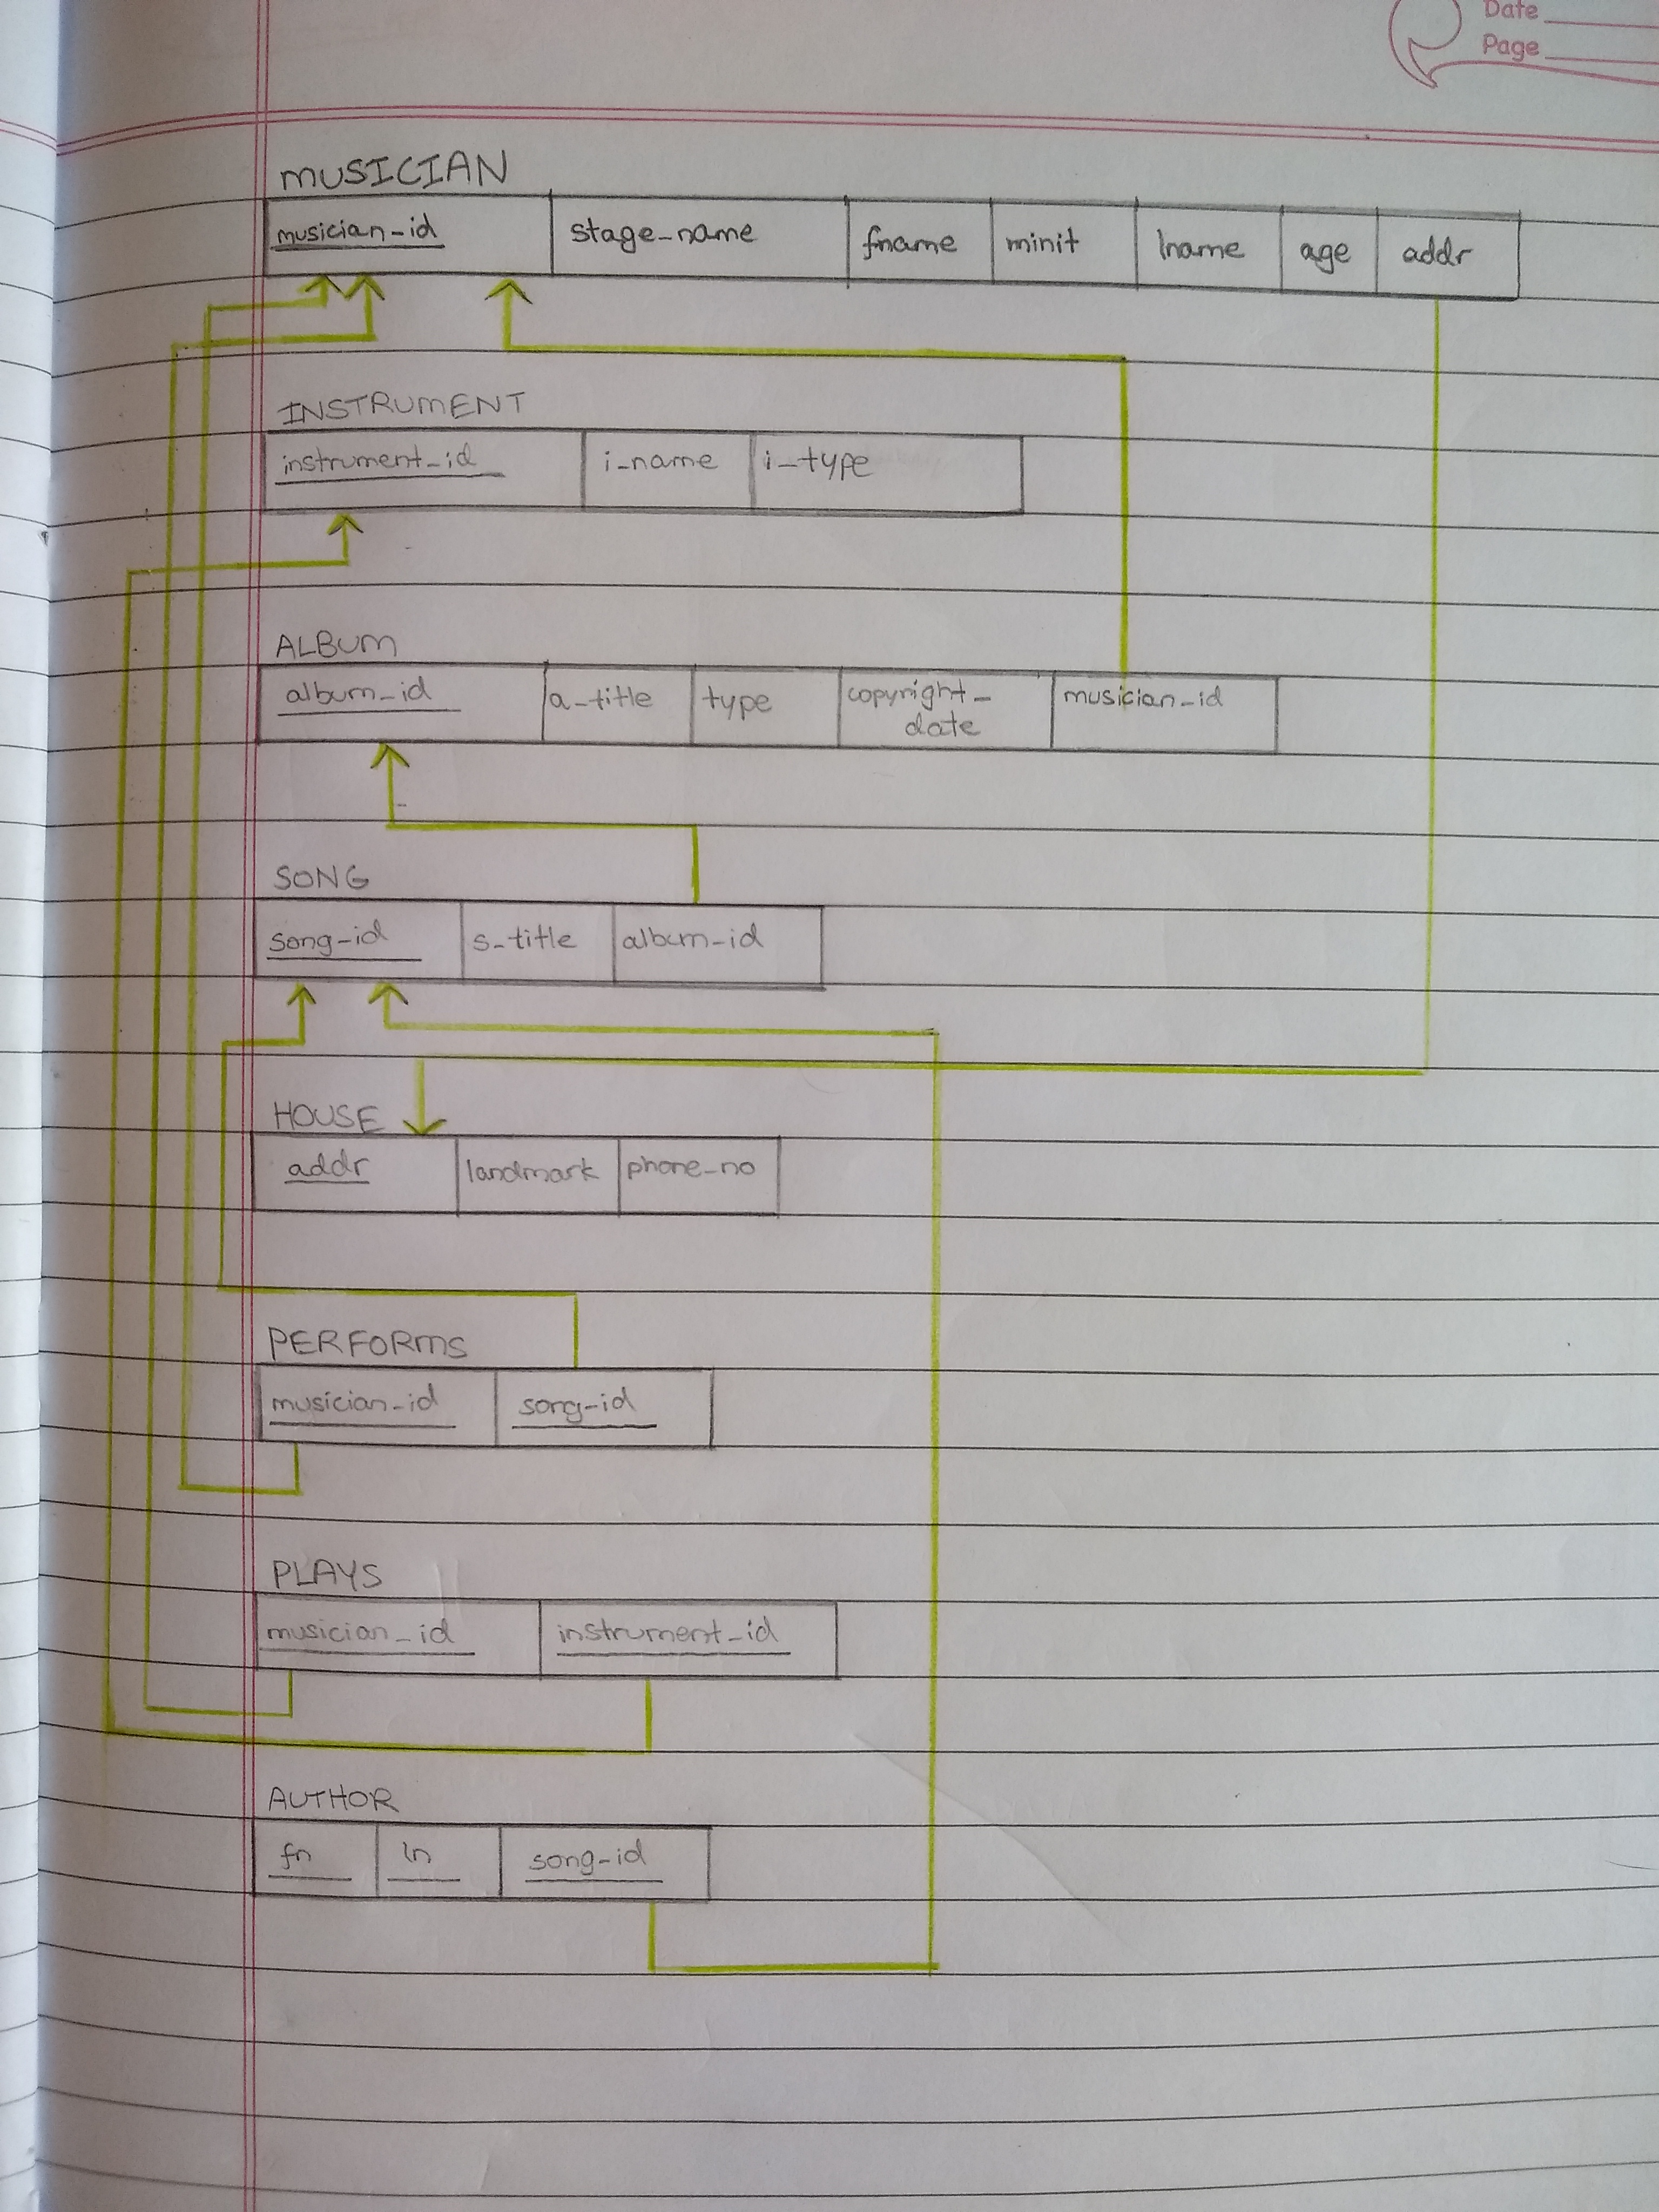 Date
Page
MUSICIAN
musician_id stage_name fname minit lname age addr
INSTRUMENT
instrument_id i_name i_type
ALBUM
album_id a_title type copyright_ musician_id
date
SONG
song_id s_title album_id
HOUSE
addr landmark phone_no
PERFORMS
musician_id song_id
PLAYS
musician_id instrument_id
AUTHOR
fn ln song_id